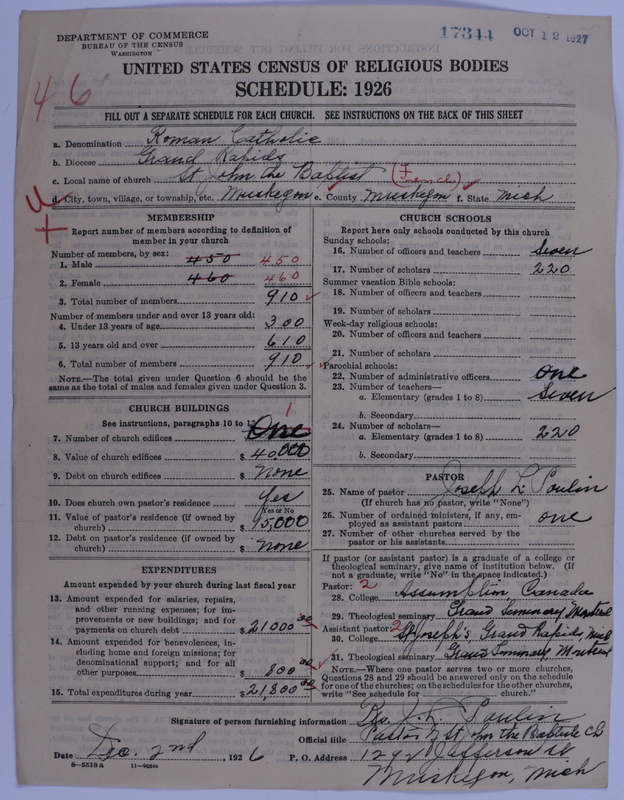 DEPARTMENT OF COMMERCE
BUREAU OF THE CENSUS
WASHINGTON
17344 OCT 12 1927
UNITED STATES CENSUS OF RELIGIOUS BODIES
SCHEDULE: 1926
46
FILL OUT A SEPARATE SCHEDULE FOR EACH CHURCH. SEE INSTRUCTIONS ON THE BACK OF THIS SHEET
a. Denomination Roman Catholic
b. Diocese Grand Rapids
c. Local name of church St John the Baptist (French)
d. City, town, village, or township, etc. Muskegon e. County Muskegon f. State Mich
MEMBERSHIP
Report number of members according to definition of
member in your church
Number of members, by sex:
1. Male 450 450
2. Female 460 460
3. Total number of members 910
Number of members under and over 13 years old:
4. Under 13 years of age 300
5. 13 years old and over 610
6. Total number of members 910
NOTE.—The total given under Question 6 should be the
same as the total of males and females given under Question 3.
CHURCH BUILDINGS
See instructions, paragraphs 10 to
7. Number of church edifices One 1
8. Value of church edifices $ 40,000
9. Debt on church edifices $ None
10. Does church own pastor's residence Yes
Yes or No
11. Value of pastor's residence (if owned by
church) $ 15,000
12. Debt on pastor's residence (if owned by
church) $ none
EXPENDITURES
Amount expended by your church during last fiscal year
13. Amount expended for salaries, repairs,
and other running expenses; for im-
provements or new buildings; and for
payments on church debt $ 21000 00
14. Amount expended for benevolences, in-
cluding home and foreign missions; for
denominational support; and for all
other purposes $ 800 00
15. Total expenditures during year $ 21,800 00
CHURCH SCHOOLS
Report here only schools conducted by this church
Sunday schools:
16. Number of officers and teachers Seven
17. Number of scholars 220
Summer vacation Bible schools:
18. Number of officers and teachers
19. Number of scholars
Week-day religious schools:
20. Number of officers and teachers
21. Number of scholars
Parochial schools:
22. Number of administrative officers one
23. Number of teachers—
a. Elementary (grades 1 to 8) Seven
b. Secondary
24. Number of scholars—
a. Elementary (grades 1 to 8) 220
b. Secondary
PASTOR
25. Name of pastor Joseph L. Poulin
(If church has no pastor, write "None")
26. Number of ordained ministers, if any, em-
ployed as assistant pastors one
27. Number of other churches served by the
pastor or his assistants.
If pastor (or assistant pastor) is a graduate of a college or
theological seminary, give name of institution below. (If
not a graduate, write "No" in the space indicated.)
Pastor: 2
28. College Assumption Canada
29. Theological seminary Grand Seminary Montreal
Assistant pastor: 2
30. College St Joseph's Grand Rapids, Mich
31. Theological seminary Grand Seminary Montreal
NOTE.—Where one pastor serves two or more churches,
Questions 28 and 29 should be answered only on the schedule
for one of the churches; on the schedules for the other churches,
write "See schedule for church."
Signature of person furnishing information J. L. Poulin
Official title Pastor of St. John the Baptist Ch
Date Dec. 2nd, 1926 P. O. Address Jefferson St
8-5518a
Muskegon, Mich